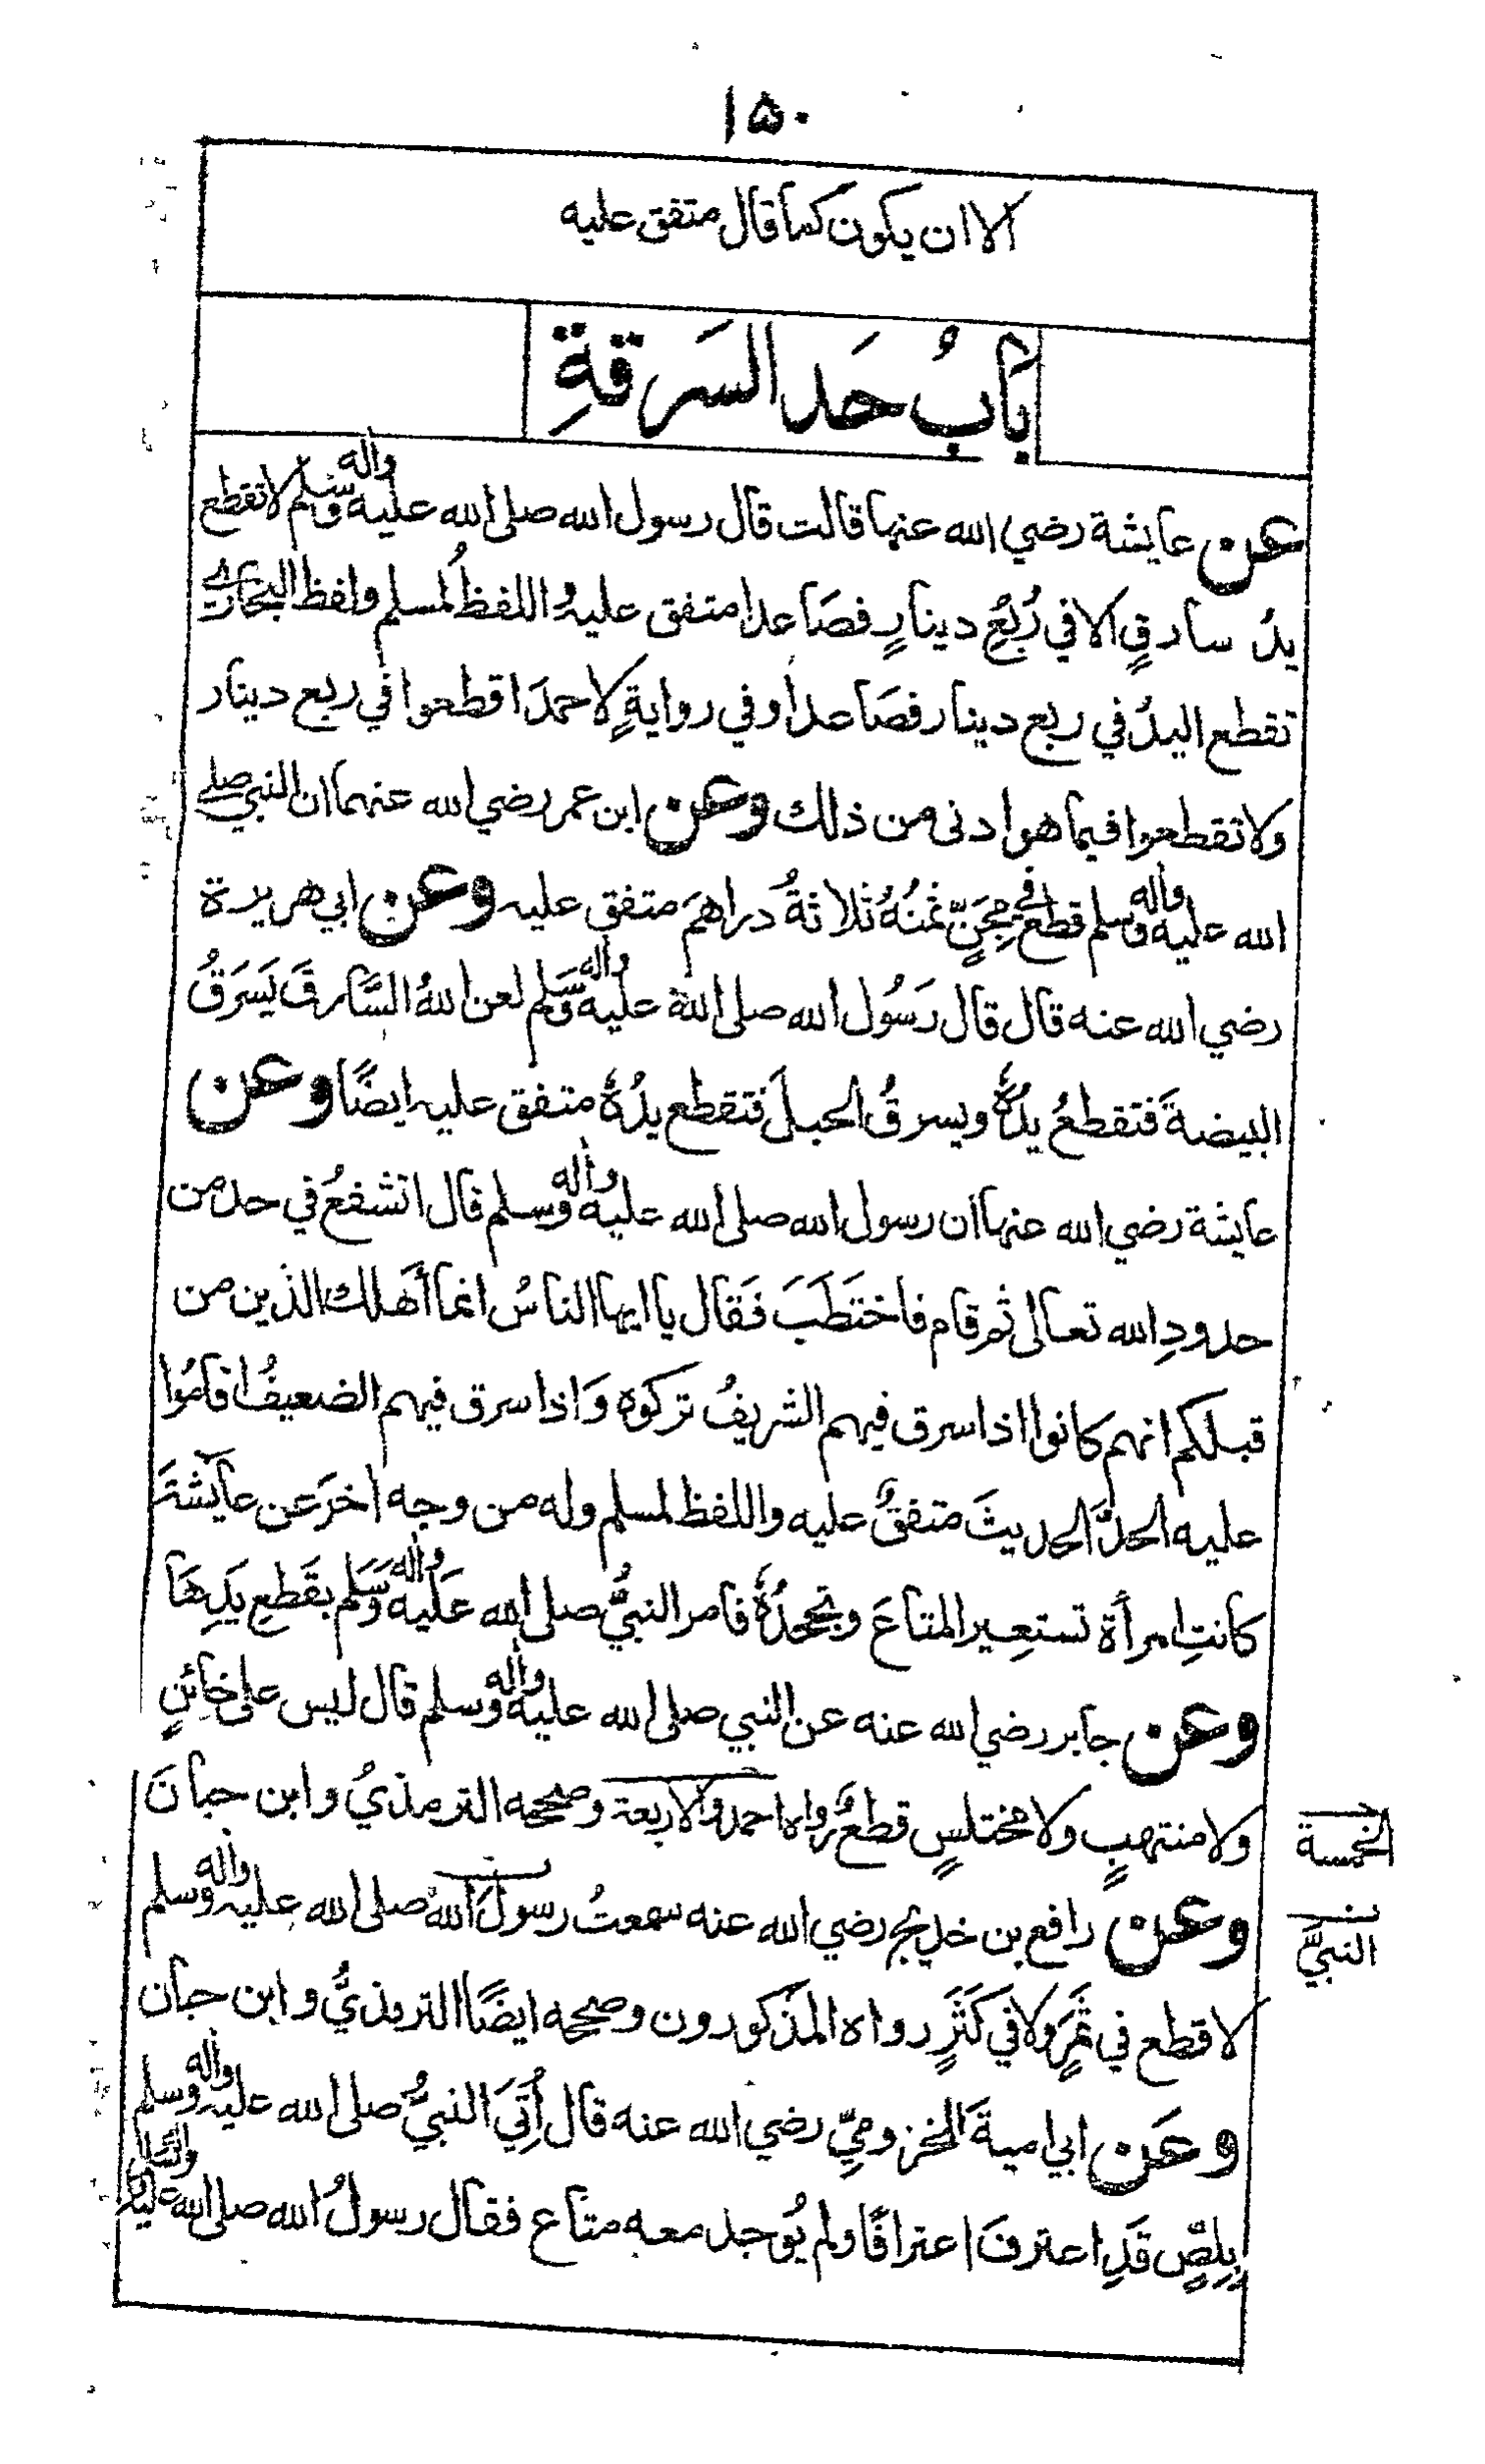 ١۵٠
الا ان يكون كما قال متفق عليه
بابُ حَد السَرقةِ
عن عايشة رضي الله عنها قالت قال رسول الله صلى الله عليه واله وسلم لا تقطع
يدُ سارقٍ الا في رُبُعِ دينارٍ فصَاعدا متفق عليه واللفظُ لمسلم ولفظ البخاري
تقطع اليدُ في ربع دينار فصَاعدا وفي روايةٍ لاحمدَ اقطعوا في ربع دينار
ولا تقطعوا فيما هو ادنى من ذلك وعن ابن عمر رضي الله عنهما ان النبي صلى
الله عليه واله وسلم قطع في مِجَنٍّ ثمنُهُ ثلاثةُ دراهمَ متفق عليه وعن ابي هريرة
رضي الله عنه قال قال رَسُول الله صلى الله عليه واله وسَلم لعن اللهُ السَّارقَ يَسَرَقُ
البيضةَ فتقطعُ يدُهُ ويسرقُ الحبلَ فتقطع يدُهُ متفق عليه ايضًا وعن
عايشة رضي الله عنها ان رسول الله صلى الله عليه واله وسلم قال اتشفعُ في حد من
حدودِ الله تعالى ثم قام فاختَطَبَ فَقال يا ايها الناسُ انما أَهلك الذين من
قبلكم انهم كانوا اذا سرق فيهم الشريفُ تركوه وَاذا سرق فيهم الضعيفُ اقامُوا
عليه الحدَّ الحديثَ متفقٌ عليه واللفظ لمسلم وله من وجه اخرَ عن عايشةَ
كانتِ امرأة تستعِير المتاعَ وتجحدُهُ فامر النبيُّ صلى الله عَليه واله وَسَلم بقَطعِ يَدِهَا
وعن جابر رضي الله عنه عن النبي صلى الله عليه واله وسلم قال ليس على خائِنٍ
ولا منتهبٍ ولا مختلسٍ قطعٌ رواه احمد والاربعة وصححه الترمذيُ وابن حبانَ
الخمسة
وعن رافع بن خديج رضي الله عنه سمعتُ رسولَ اللهِ صلى الله عليه واله وسلم
النبيَّ
لا قطع في ثَمَرٍ ولا في كَثَرٍ رواه المذكورون وصححه ايضًا الترمذيُّ وابن حبان
وعَن ابي اميةَ المخزوميِّ رضي الله عنه قال أُتِيَ النبيُّ صلى الله عليه واله وسلم
بِلِصٍّ قَدِ اعترفَ اعترافًا ولم يُوجد معه متاع فقال رسولُ الله صلى الله عليه